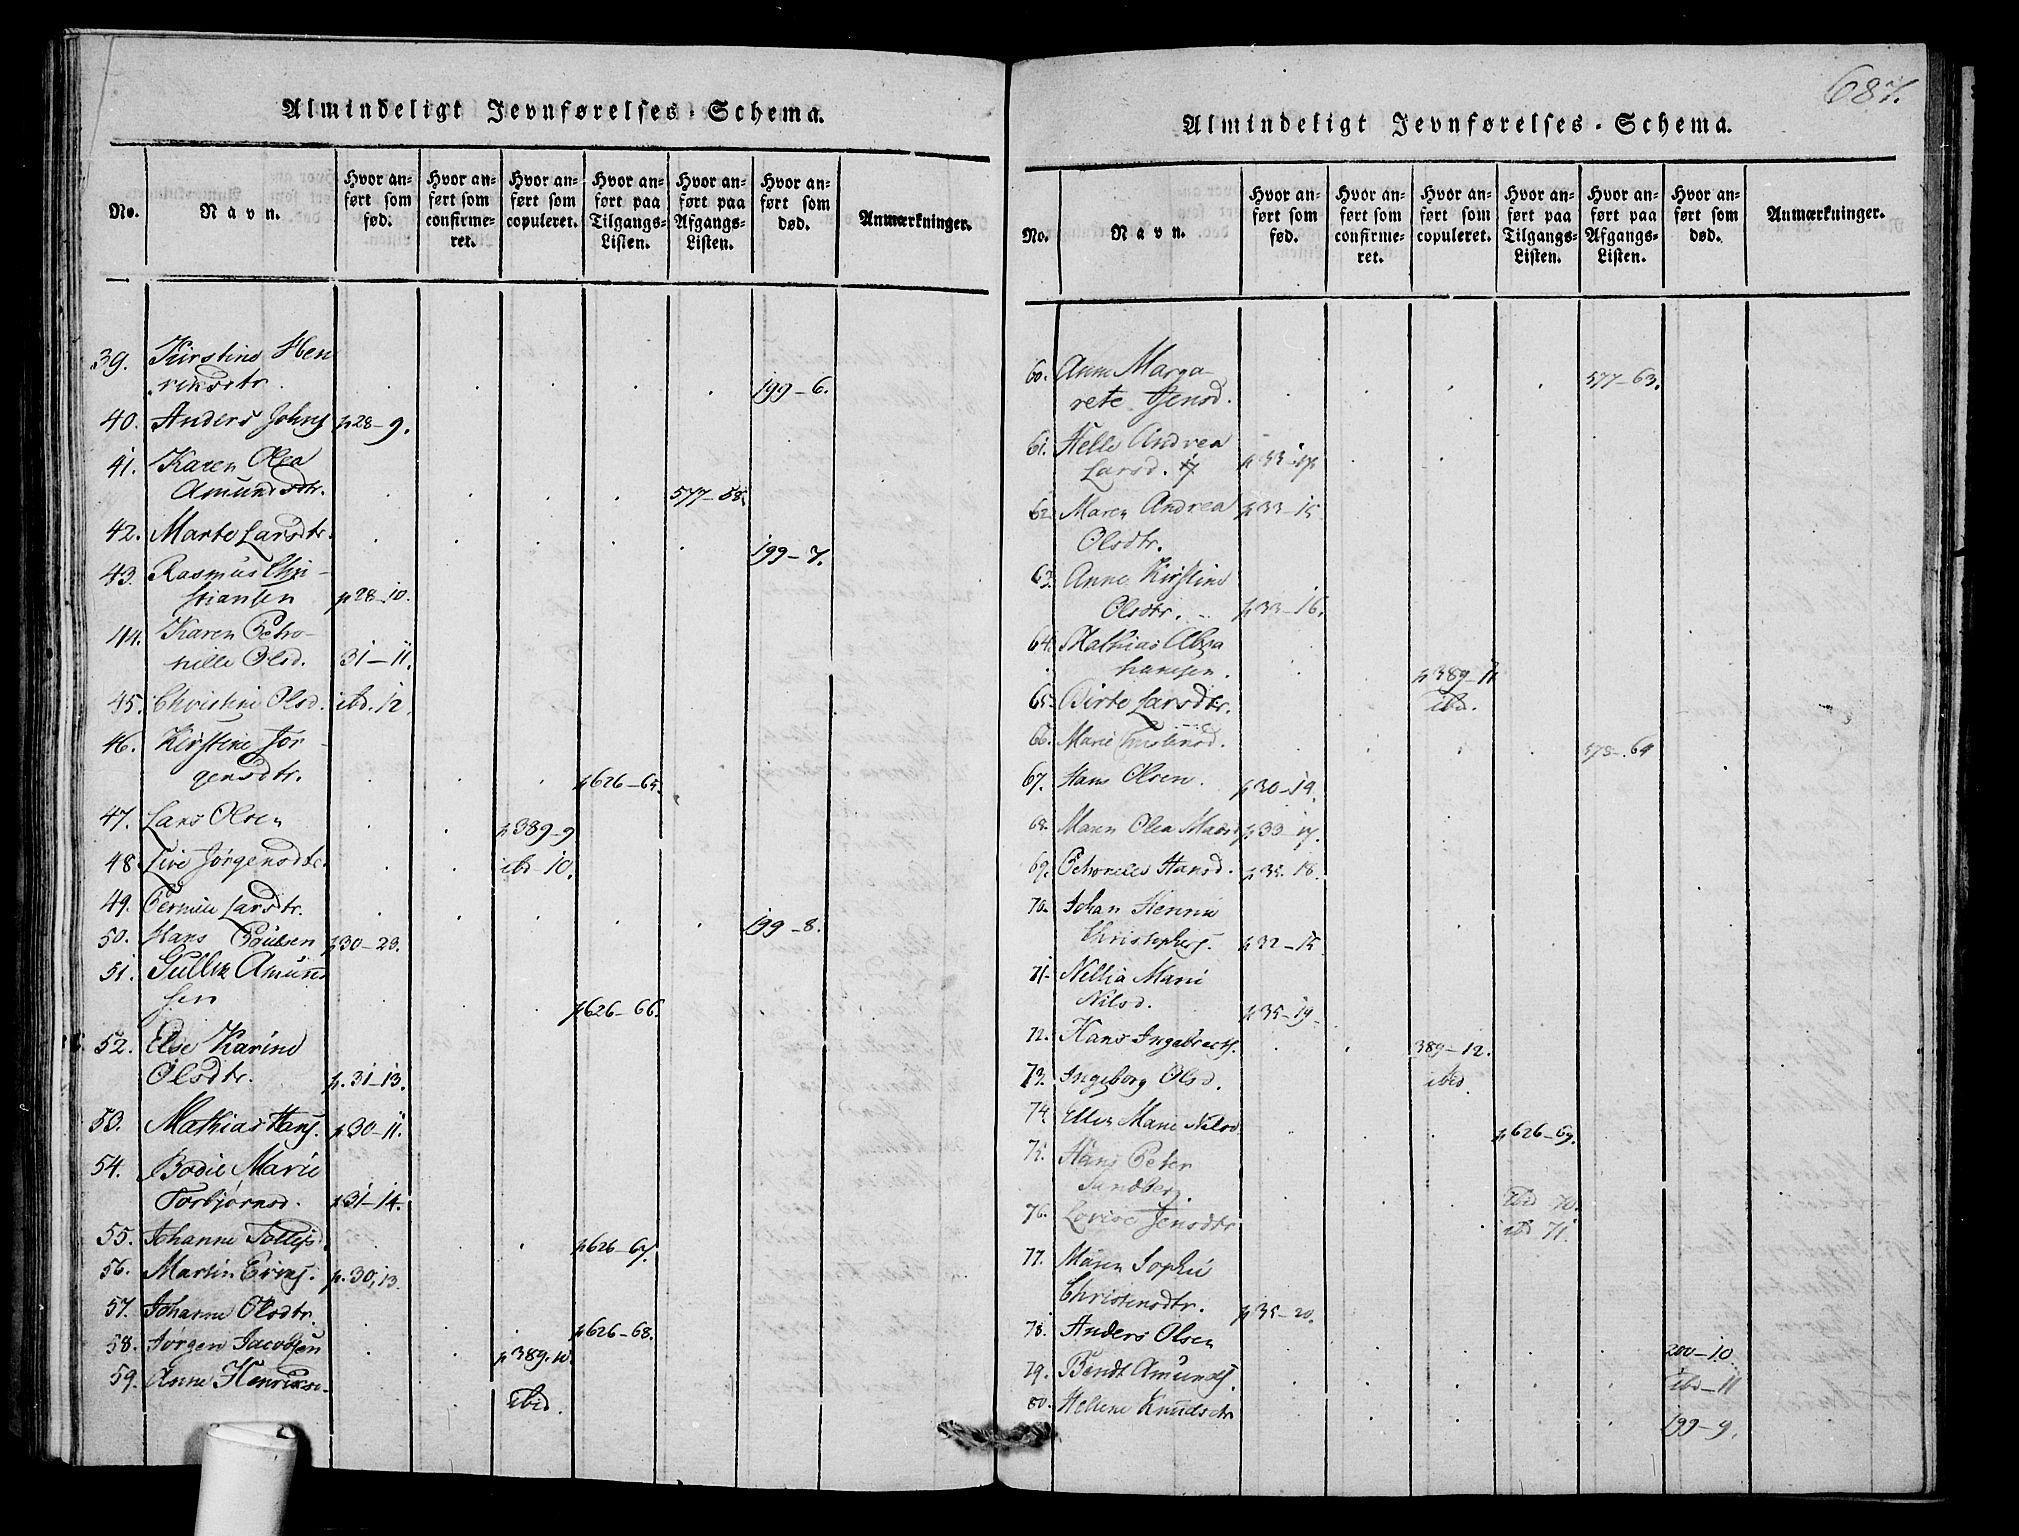 Almindeligt Jevnførelses-Schema.
No. Navn. Hvor anført som fød. Hvor anført som confirmeret. Hvor anført som copuleret. Hvor anført paa Tilgangs-Listen. Hvor anført paa Afgangs-Listen. Hvor anført som død. Anmærkninger.
39. Kirstine Hen
riksdtr. 199-6.
40. Anders Johns p28-9.
41. Karen Olea
Amundsdtr. 577-58.
42. Marte Larsdtr. 199-7.
43. Rasmus Chri-
stiansen p28-10.
44. Karen Petro-
nille Olsd. 31-11.
45. Christine Olsd. ibd. 12.
46. Kirstine Jør-
gensdtr. p626-65.
47. Lars Olsen p389-9
48. Live Jørgensdtr. ibd 10.
49. Pernille Larsdtr. 199-8.
50. Hans Poulsen p30-23.
51. Gullik Amund
sen p626-66.
52. Else Karine
Olsdtr. p.31-13.
53. Mathias Hans. p30-11.
54. Bodil Marie
Torbjørnsd. p31-14.
55. Johanne Tollefsd. p626-67.
56. Martin Erics. p.30,13
57. Johanne Olsdtr. p626-68.
58. Jørgen Jacobsen p389.10.
59. Anne Henriks. ibid.
687.
Almindeligt Jevnførelses-Schema.
No. Navn. Hvor anført som fød. Hvor anført som confirmeret. Hvor anført som copuleret. Hvor anført paa Tilgangs-Listen. Hvor anført paa Afgangs-Listen. Hvor anført som død. Anmærkninger.
60. Anne Marga-
rete Jensd. 577-63.
61. Helle Andrea
Larsd. p33-14.
62. Maren Andrea p33-15
Olsdtr.
63. Anne Kirstine
Olsdtr. p33-16.
64. Mathias Abra
hamsen. p389-11
65. Birte Larsdtr. ibd.
66. Marie 578-64
67. Hans Olsen. p30-14.
68. Maren Olea Madsd p33-17.
69. Petronelle Hansd. p35-18.
70. Johan Henrik
Christophers. p32-15
71. Nellia Marie
Nilsd. p35-19.
72. Hans Ingebrects. 389-12.
73. Ingeborg Olsd. ibid
74. Ellen Marie Nilsd p626-69.
75. Hans Peter
Sundberg. ibd 70.
76. Lovise Jensdtr ibd 71.
77. Maren Sophie
Christensdtr. p35-20.
78. Anders Olsen 200-10.
79. Bendt Amunds. ibd-11
80. Helene Knudsdtr 199-9.